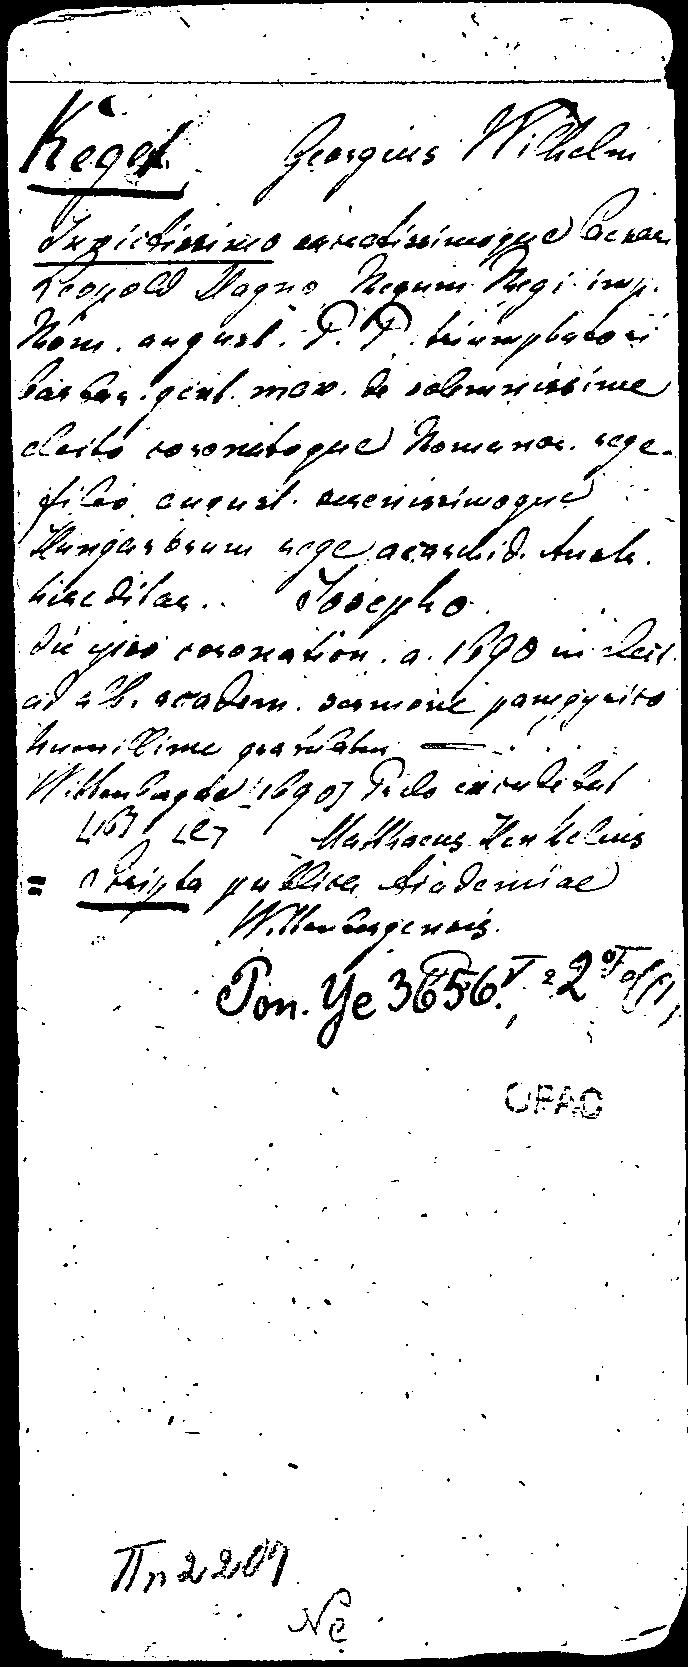 Kegel Georgius Wilhelm
Invictissimo Caesari
Leopold Magno Regum Regi imp.
Rom. august. P. P. triumphatori
barbar. gent. max. de solemnissime
electo coronatoque Romanor. rege
filio august. serenissimoque
Hungarorum rege, archid. Austr.
hereditar. Josepho
die ipso coronation. a. 1690 in
academ. sermone panegyrico
humillime gratulatur —
Wittenbergae 1690] Prelo excudebat
Matthaeus Henkelius
= Scripta publica Academiae
Wittenbergensis.
Pon. Ye 3656
OPAC
Пn 2209